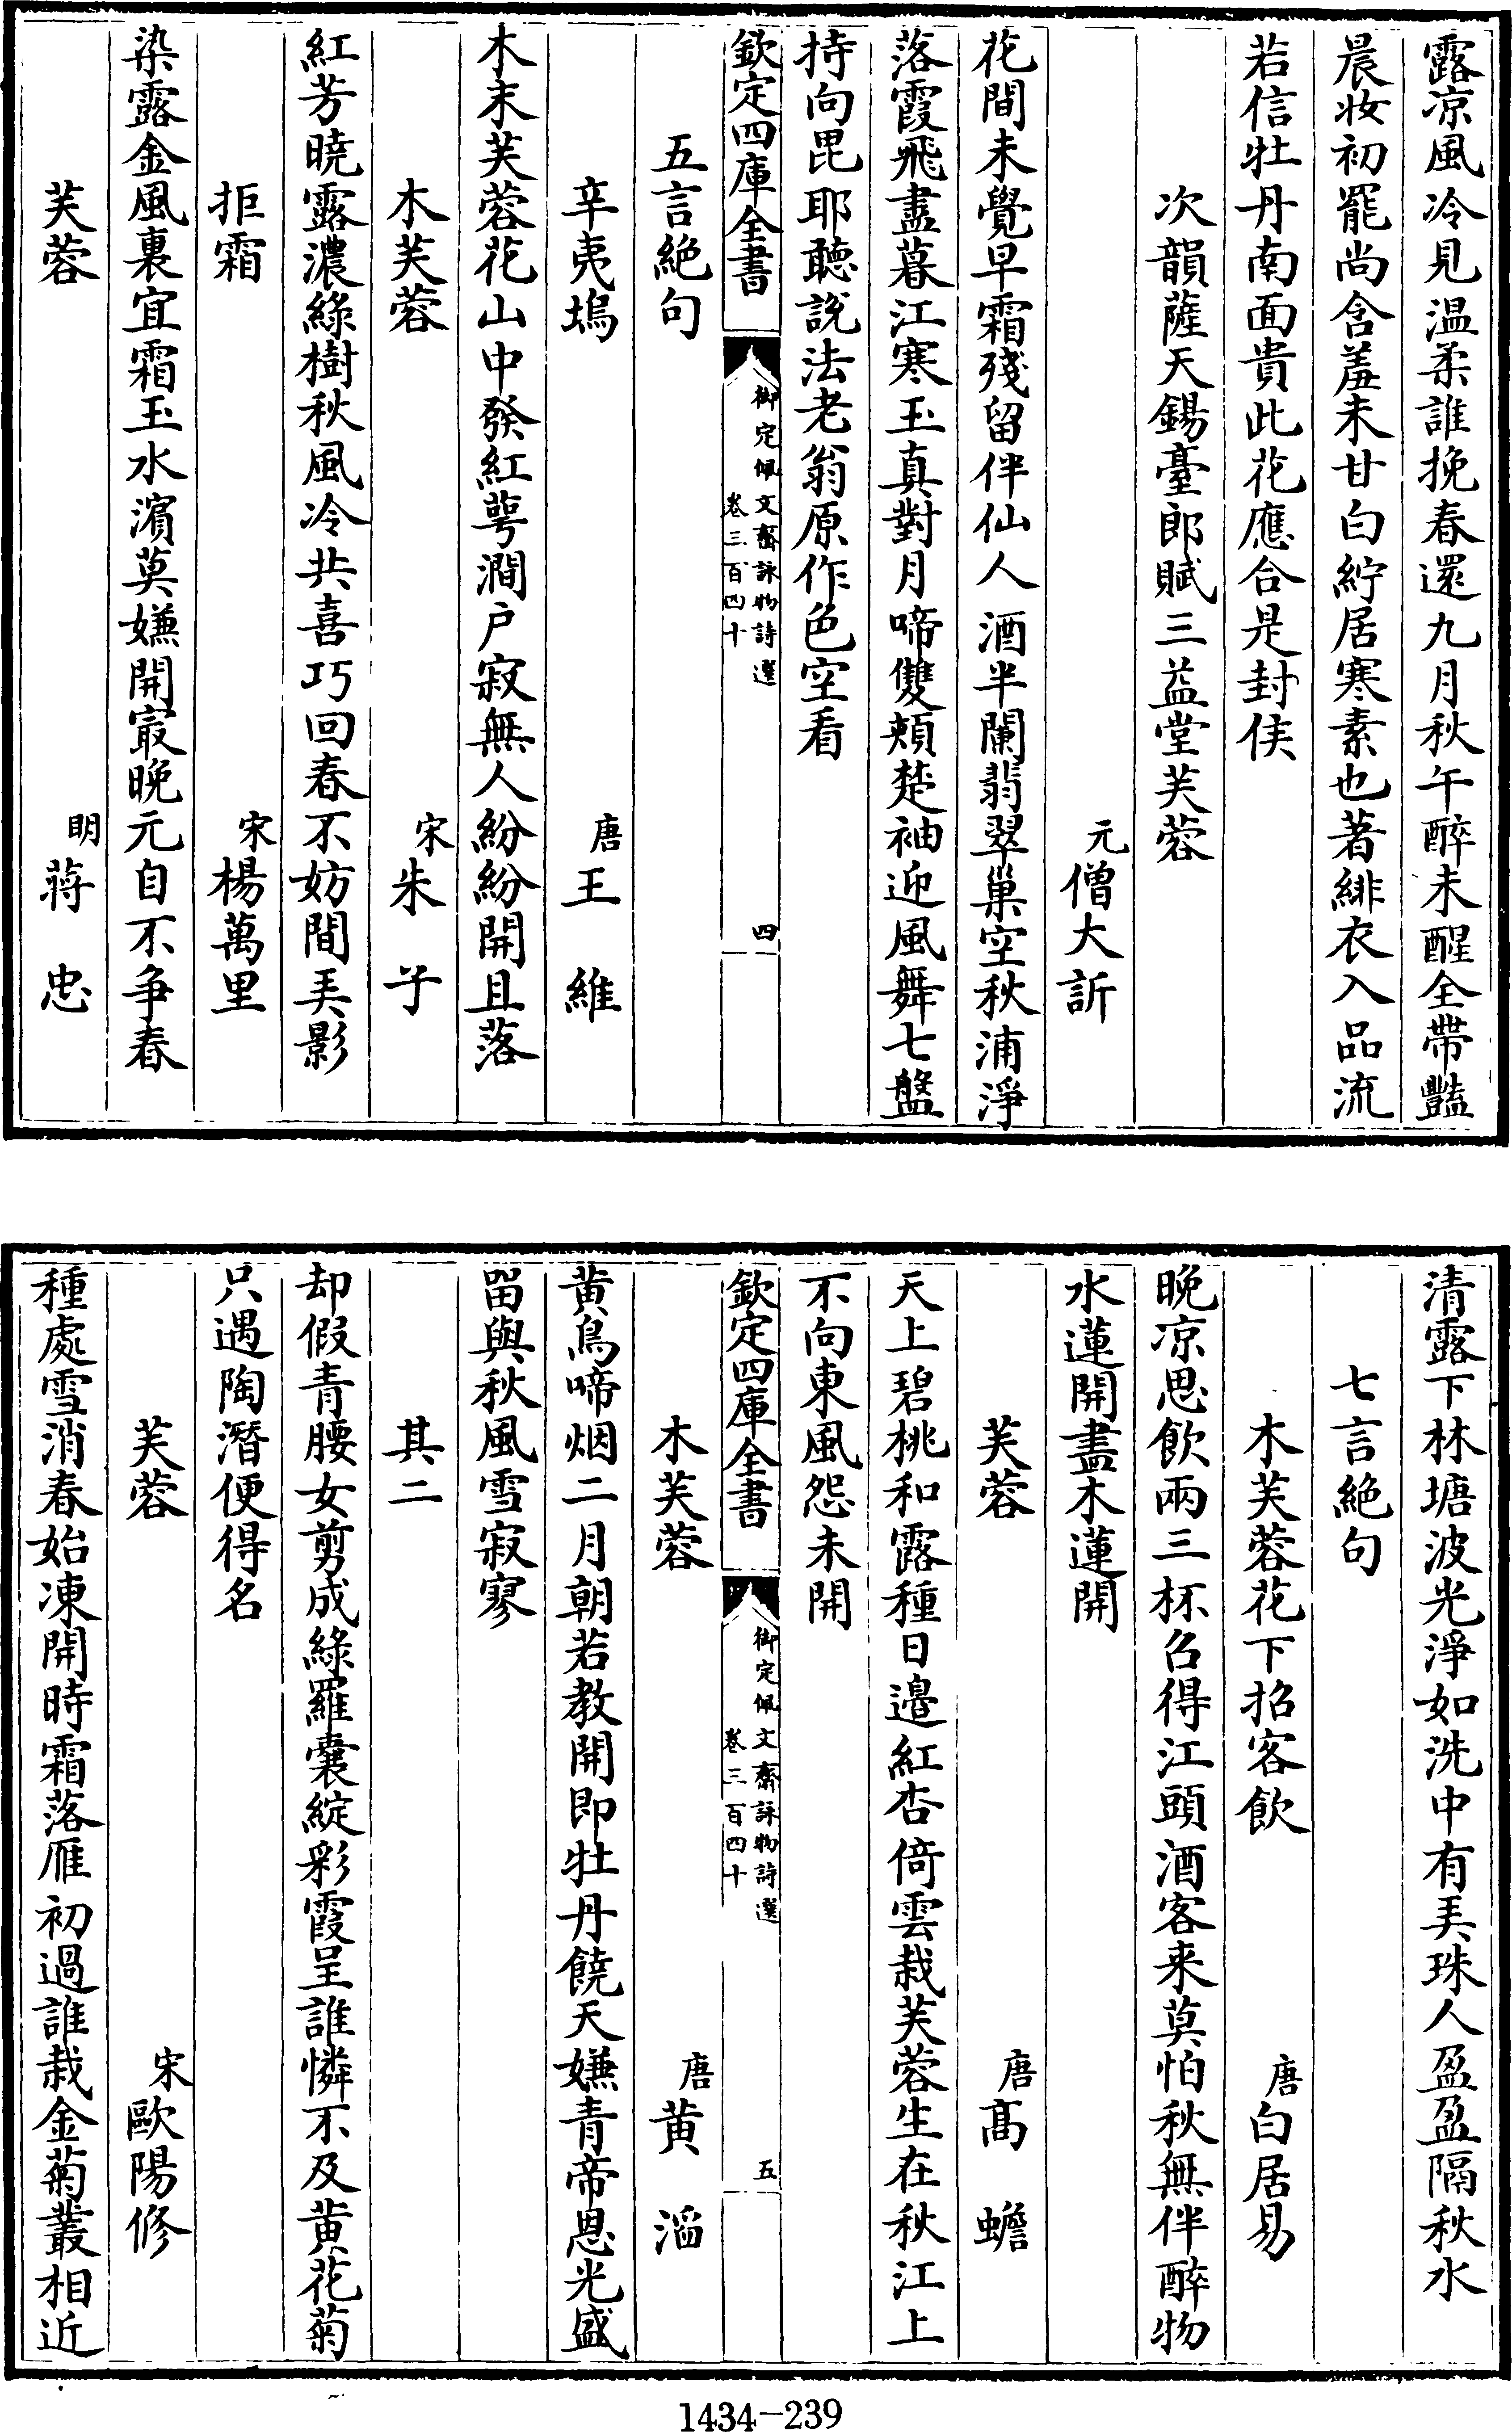 露凉風冷見温柔誰挽春還九月秋午醉未醒全帶豔
晨妝初罷尚含羞未甘白紵居寒素也著緋衣入品流
若信牡丹南面貴此花應合是封侯
次韻薩天錫臺郎賦三益堂芙蓉
元僧大訢
花間未覺早霜殘留伴仙人酒半闌翡翠巢空秋浦淨
落霞飛盡暮江寒玉真對月啼雙頰楚袖迎風舞七盤
持向毘耶聽説法老翁原作色空看
欽定四庫全書
御定佩文齋詠物詩選
卷三百四十
四
五言絶句
辛夷塢
唐王維
木末芙蓉花山中發紅萼澗户寂無人紛紛開且落
木芙蓉
宋朱子
紅芳曉露濃綠樹秋風冷共喜巧回春不妨閒弄影
拒霜
宋楊萬里
染露金風裏宜霜玉水濵莫嫌開最晚元自不争春
芙蓉
明蔣忠
清露下林塘波光淨如洗中有弄珠人盈盈隔秋水
七言絶句
木芙蓉花下招客飲
唐白居易
晚凉思飲兩三杯召得江頭酒客来莫怕秋無伴醉物
水蓮開盡木蓮開
芙蓉
唐高蟾
天上碧桃和露種日邉紅杏倚雲栽芙蓉生在秋江上
不向東風怨未開
欽定四庫全書
御定佩文齋詠物詩選
卷三百四十
五
木芙蓉
唐黄滔
黄鳥啼烟二月朝若教開即牡丹饒天嫌青帝恩光盛
留與秋風雪寂寥
其二
却假青腰女剪成綠羅囊綻彩霞呈誰憐不及黄花菊
只遇陶潛便得名
芙蓉
宋歐陽修
種處雪消春始凍開時霜落雁初過誰栽金菊叢相近
1434-239